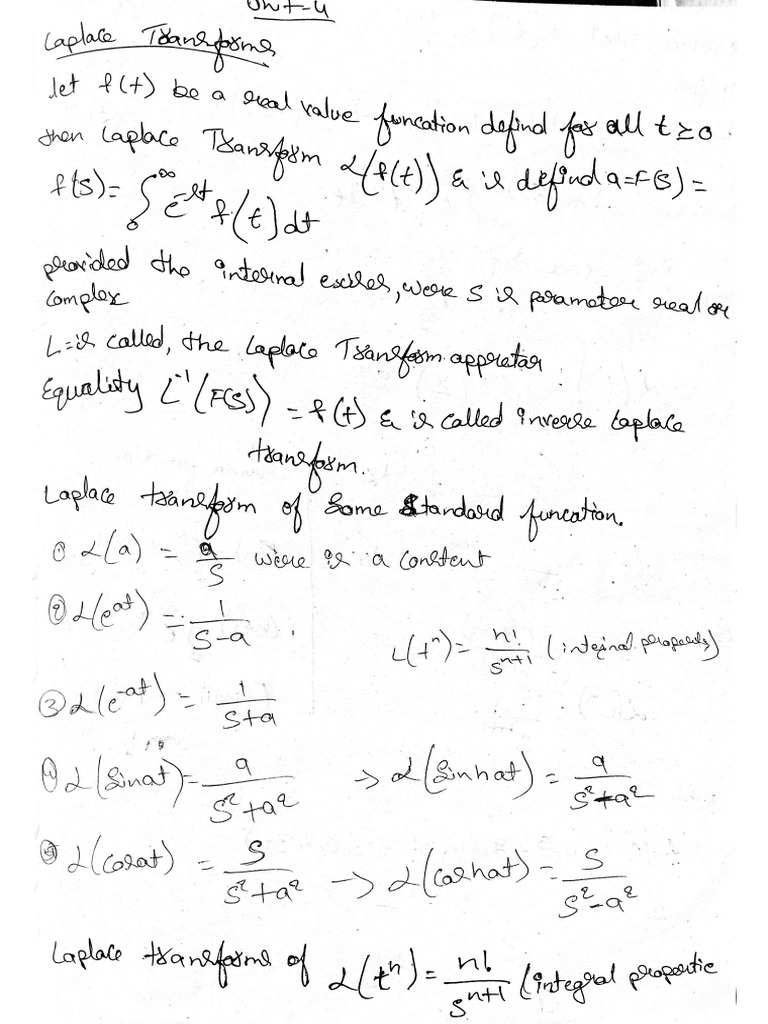 Unit-4
Laplace Transforms
let f(t) be a real value funcation defind for all t ≥ 0.
then Laplace Transform L(f(t)) & is defind a = F(s) =
f(s) = ∫₀^∞ e^-st f(t) dt
provided the internal exsises, were s is parameter real or
complex
L = is called, the Laplace Transform
Equality L^-1(F(s)) = f(t) & is called inverse Laplace
transform.
Laplace transform of Some Standard funcation.
① L(a) = a/s were is a constent
② L(e^at) = 1/(s-a).
L(t^n) = n!/s^n+1 (
③ L(e^-at) = 1/(s+a)
④ L(sinat) = a/(s²+a²) → L(sinhat) = a/(s²-a²)
⑤ L(cosat) = s/(s²+a²) → L(coshat) = s/(s²-a²)
Laplace transforms of L(t^n) = n!/s^n+1 (integral propertie